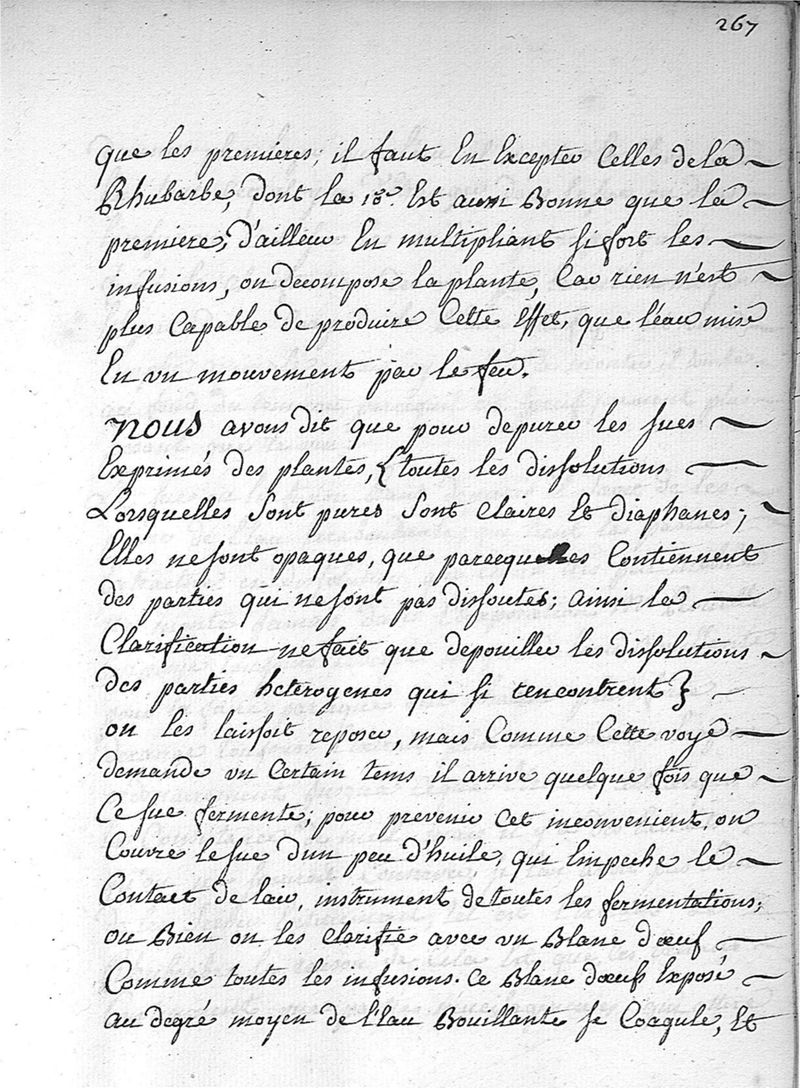 267
que les premieres; il faut En Excepter Celles de la
Rhubarbe, dont la 15e. Est aussi Bonne que la
premiere, d'ailleur En multipliant si fort les
infusions, on decompose la plante, Car rien n'est
plus Capable de produire Cette Effet, que l'éau mise
En un mouvement par le feu.
nous avons dit que pour depurer les sucs
Exprimés des plantes, { toutes les dissolutions
Lorsquelles Sont pures Sont claires Et diaphanes;
Elles ne sont opaques, que parcequelles Contiennent
des parties qui ne sont pas dissoutes; ainsi la
Clarification ne fait que depouiller les dissolutions
des parties heterogenes qui si rencontrent }
on les laissoit reposer, mais Comme Cette voye
demande un Certain tems il arrive quelque fois que
Ce suc fermente; pour prevenir Cet inconvenient, on
Couvre le suc d'un peu d'huile, qui Empeche le
Contact de lair, instrument de toutes les fermentations;
ou Bien on les clarifie avec un Blanc d'œuf
Comme toutes les infusions. Ce Blanc d'œufs Exposé
au degré moyen de l'Eau Bouillante se Coagule, Et